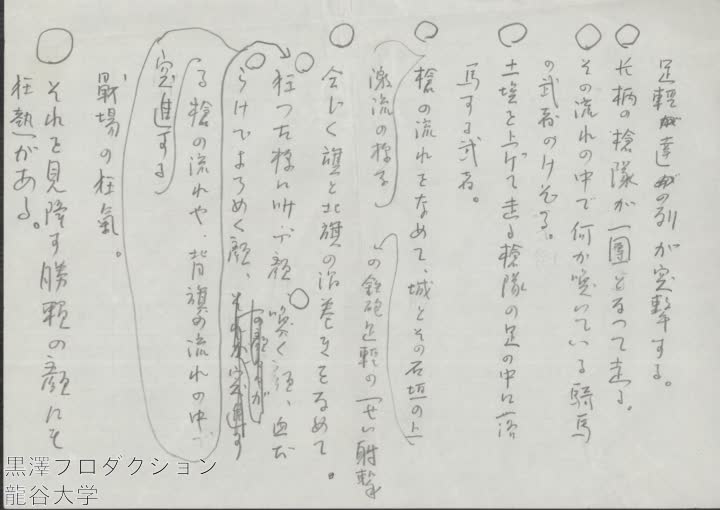 足軽達の列が突撃する。
○長柄の槍隊が一團となって走る。
○その流れの中で何か喚いている騎馬
の武者のけぞる。
○土埃を上げて走る槍隊の足の中に落
馬する武者。
○槍の流れをなめて、城とその石垣の上
の鉄砲足軽の一せい射撃
激流の様な
○会じく旗と背旗の渦巻きをなめて。
○狂った様に叫ぶ顔 ○喚く顔、血だ
○らけでよろめく顔、
る槍の流れや、背旗の流れの中で
突進する
戰場の狂氣。
○それを見降す勝頼の顔にも
狂熱がある。
黒澤プロダクション
龍谷大学